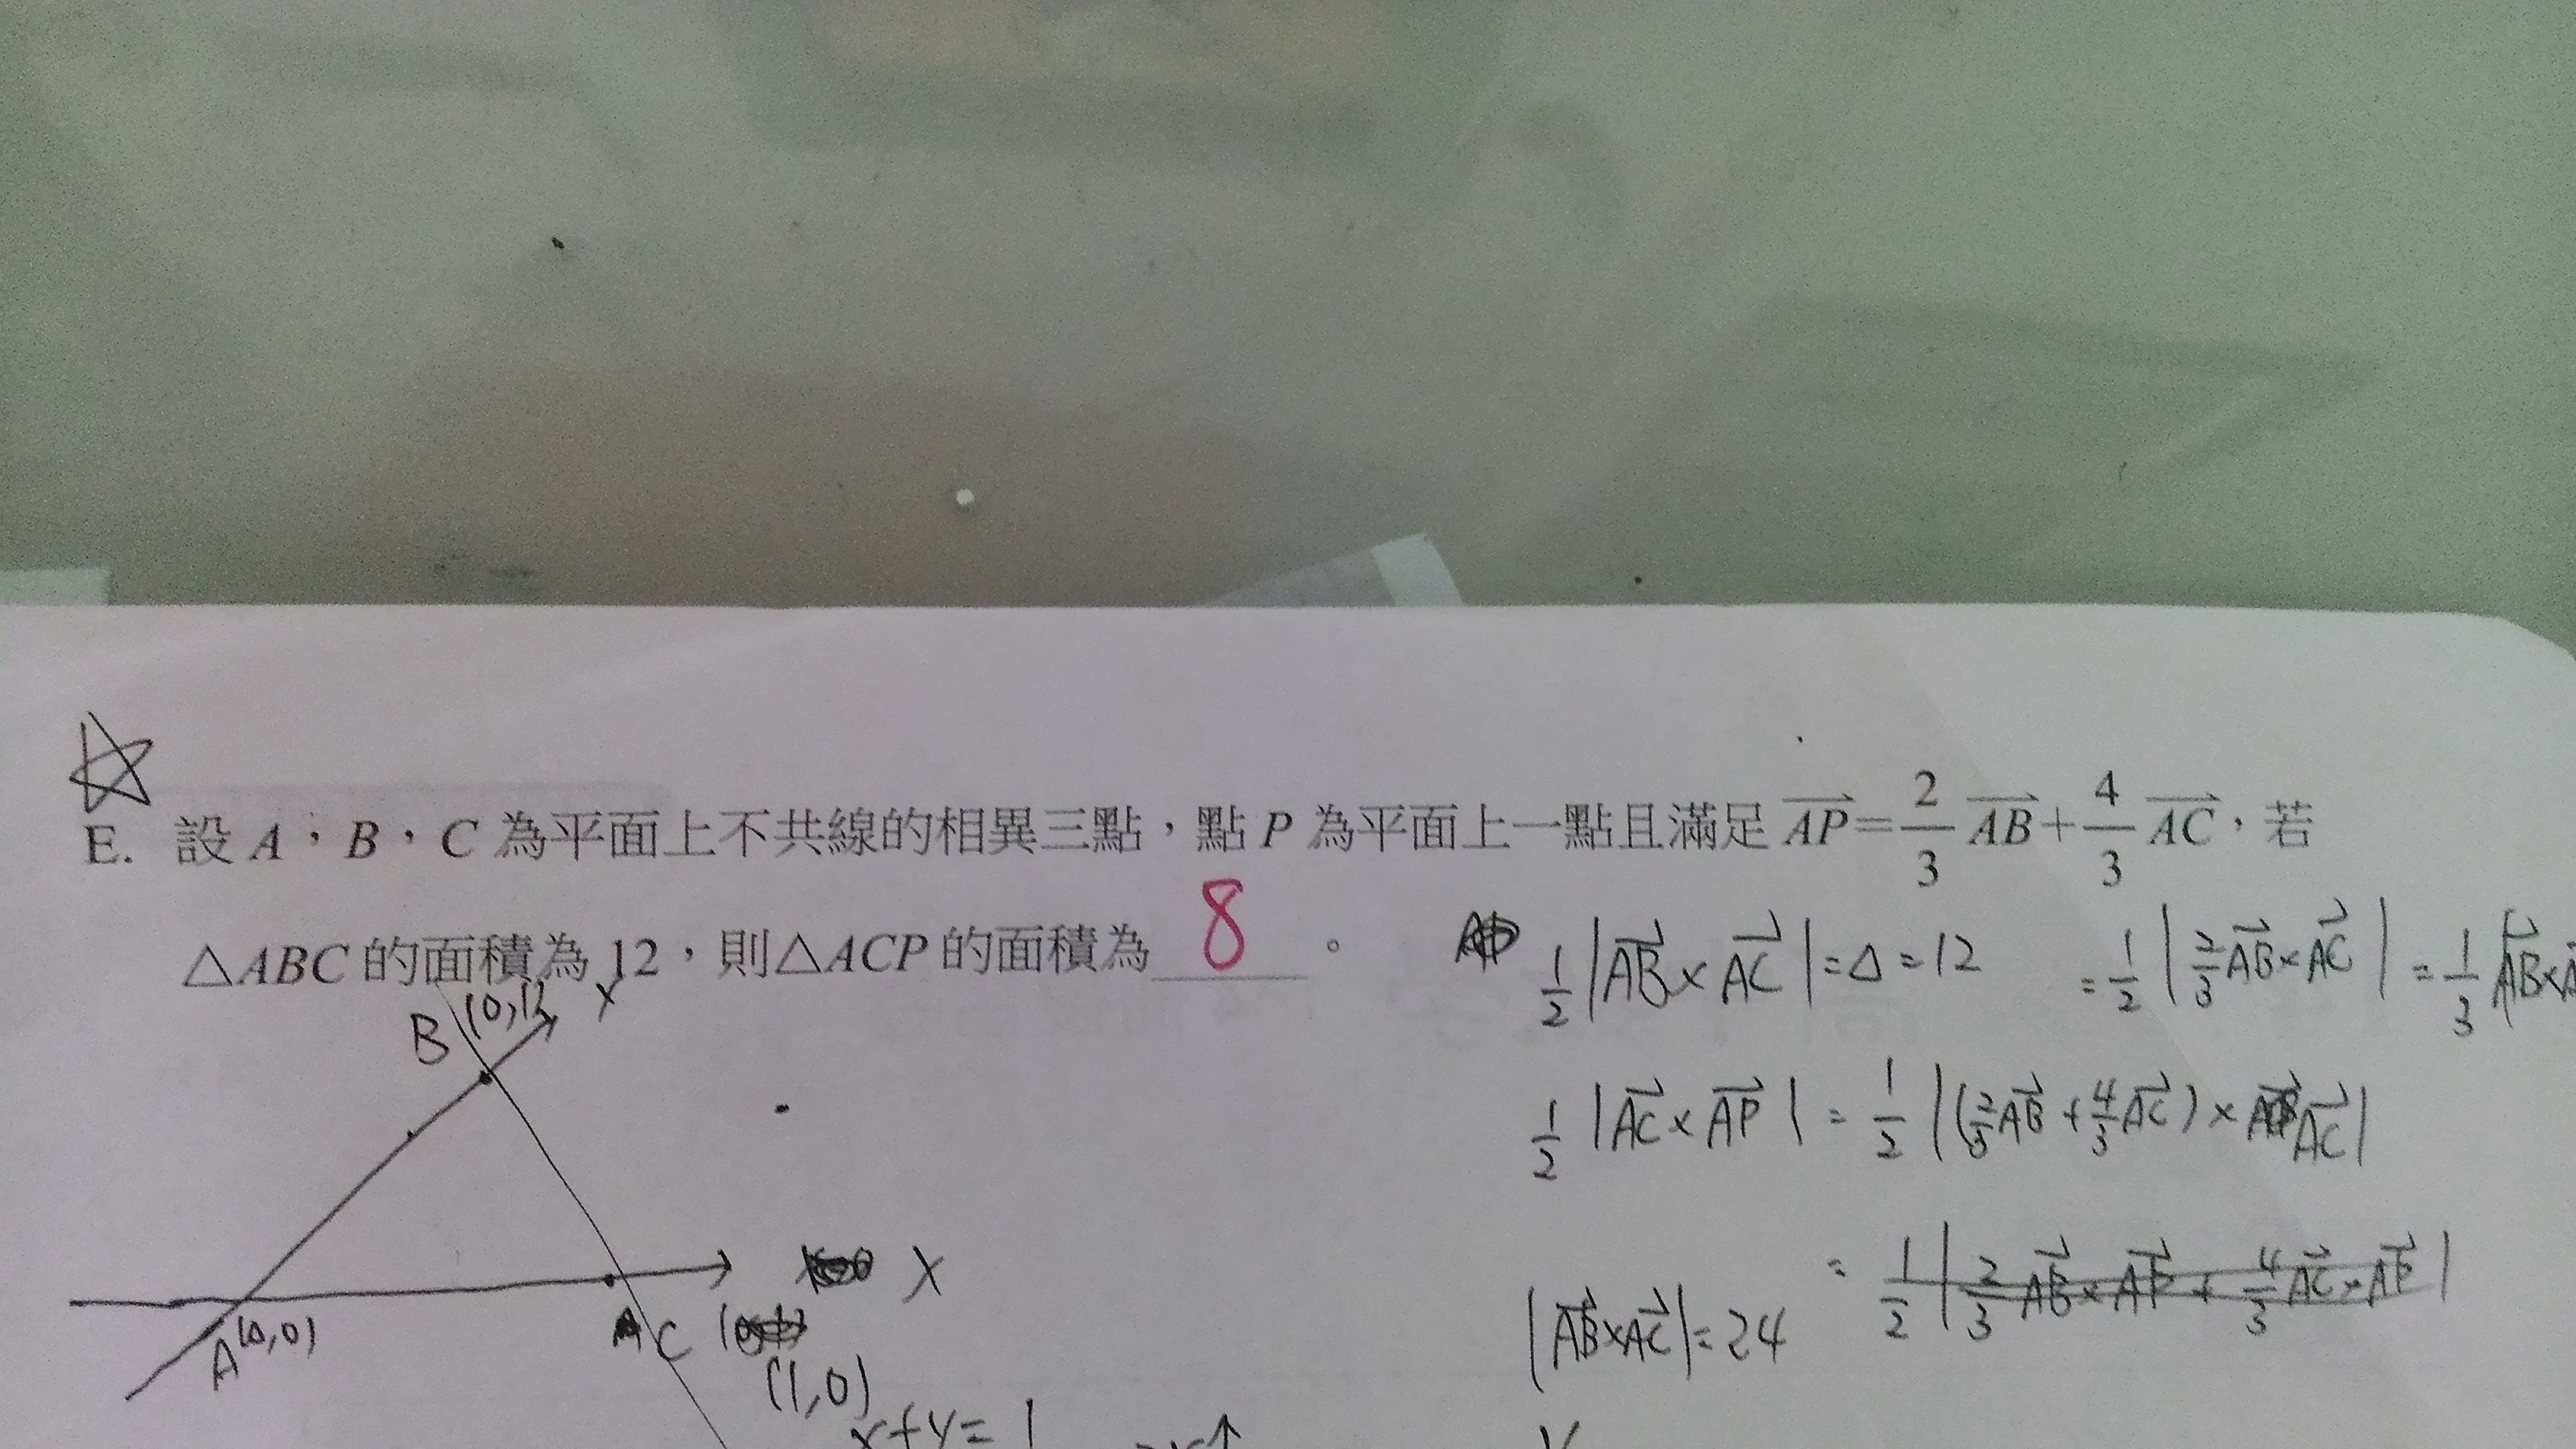 E. 設 A，B，C 為平面上不共線的相異三點，點 P 為平面上一點且滿足 $\overrightarrow{AP}=\frac{2}{3}\overrightarrow{AB}+\frac{4}{3}\overrightarrow{AC}$，若
△ABC 的面積為 12，則△ACP 的面積為 8 。
$\frac{1}{2}|\overrightarrow{AB}\times\overrightarrow{AC}|=△=12$
$=\frac{1}{2}|\frac{2}{3}\overrightarrow{AB}\times\overrightarrow{AC}|=\frac{1}{3}|\overrightarrow{AB}\times$
$\frac{1}{2}|\overrightarrow{AC}\times\overrightarrow{AP}|=\frac{1}{2}|(\frac{2}{3}\overrightarrow{AB}+\frac{4}{3}\overrightarrow{AC})\times\overrightarrow{AC}|$
$=\frac{1}{2}|\frac{2}{3}\overrightarrow{AB}\times\overrightarrow{AP}+\frac{4}{3}\overrightarrow{AC}\times\overrightarrow{AP}|$
$|\overrightarrow{AB}\times\overrightarrow{AC}|=24$
B (0,1) Y
X
A (0,0)
C
(1,0)
x+y=1